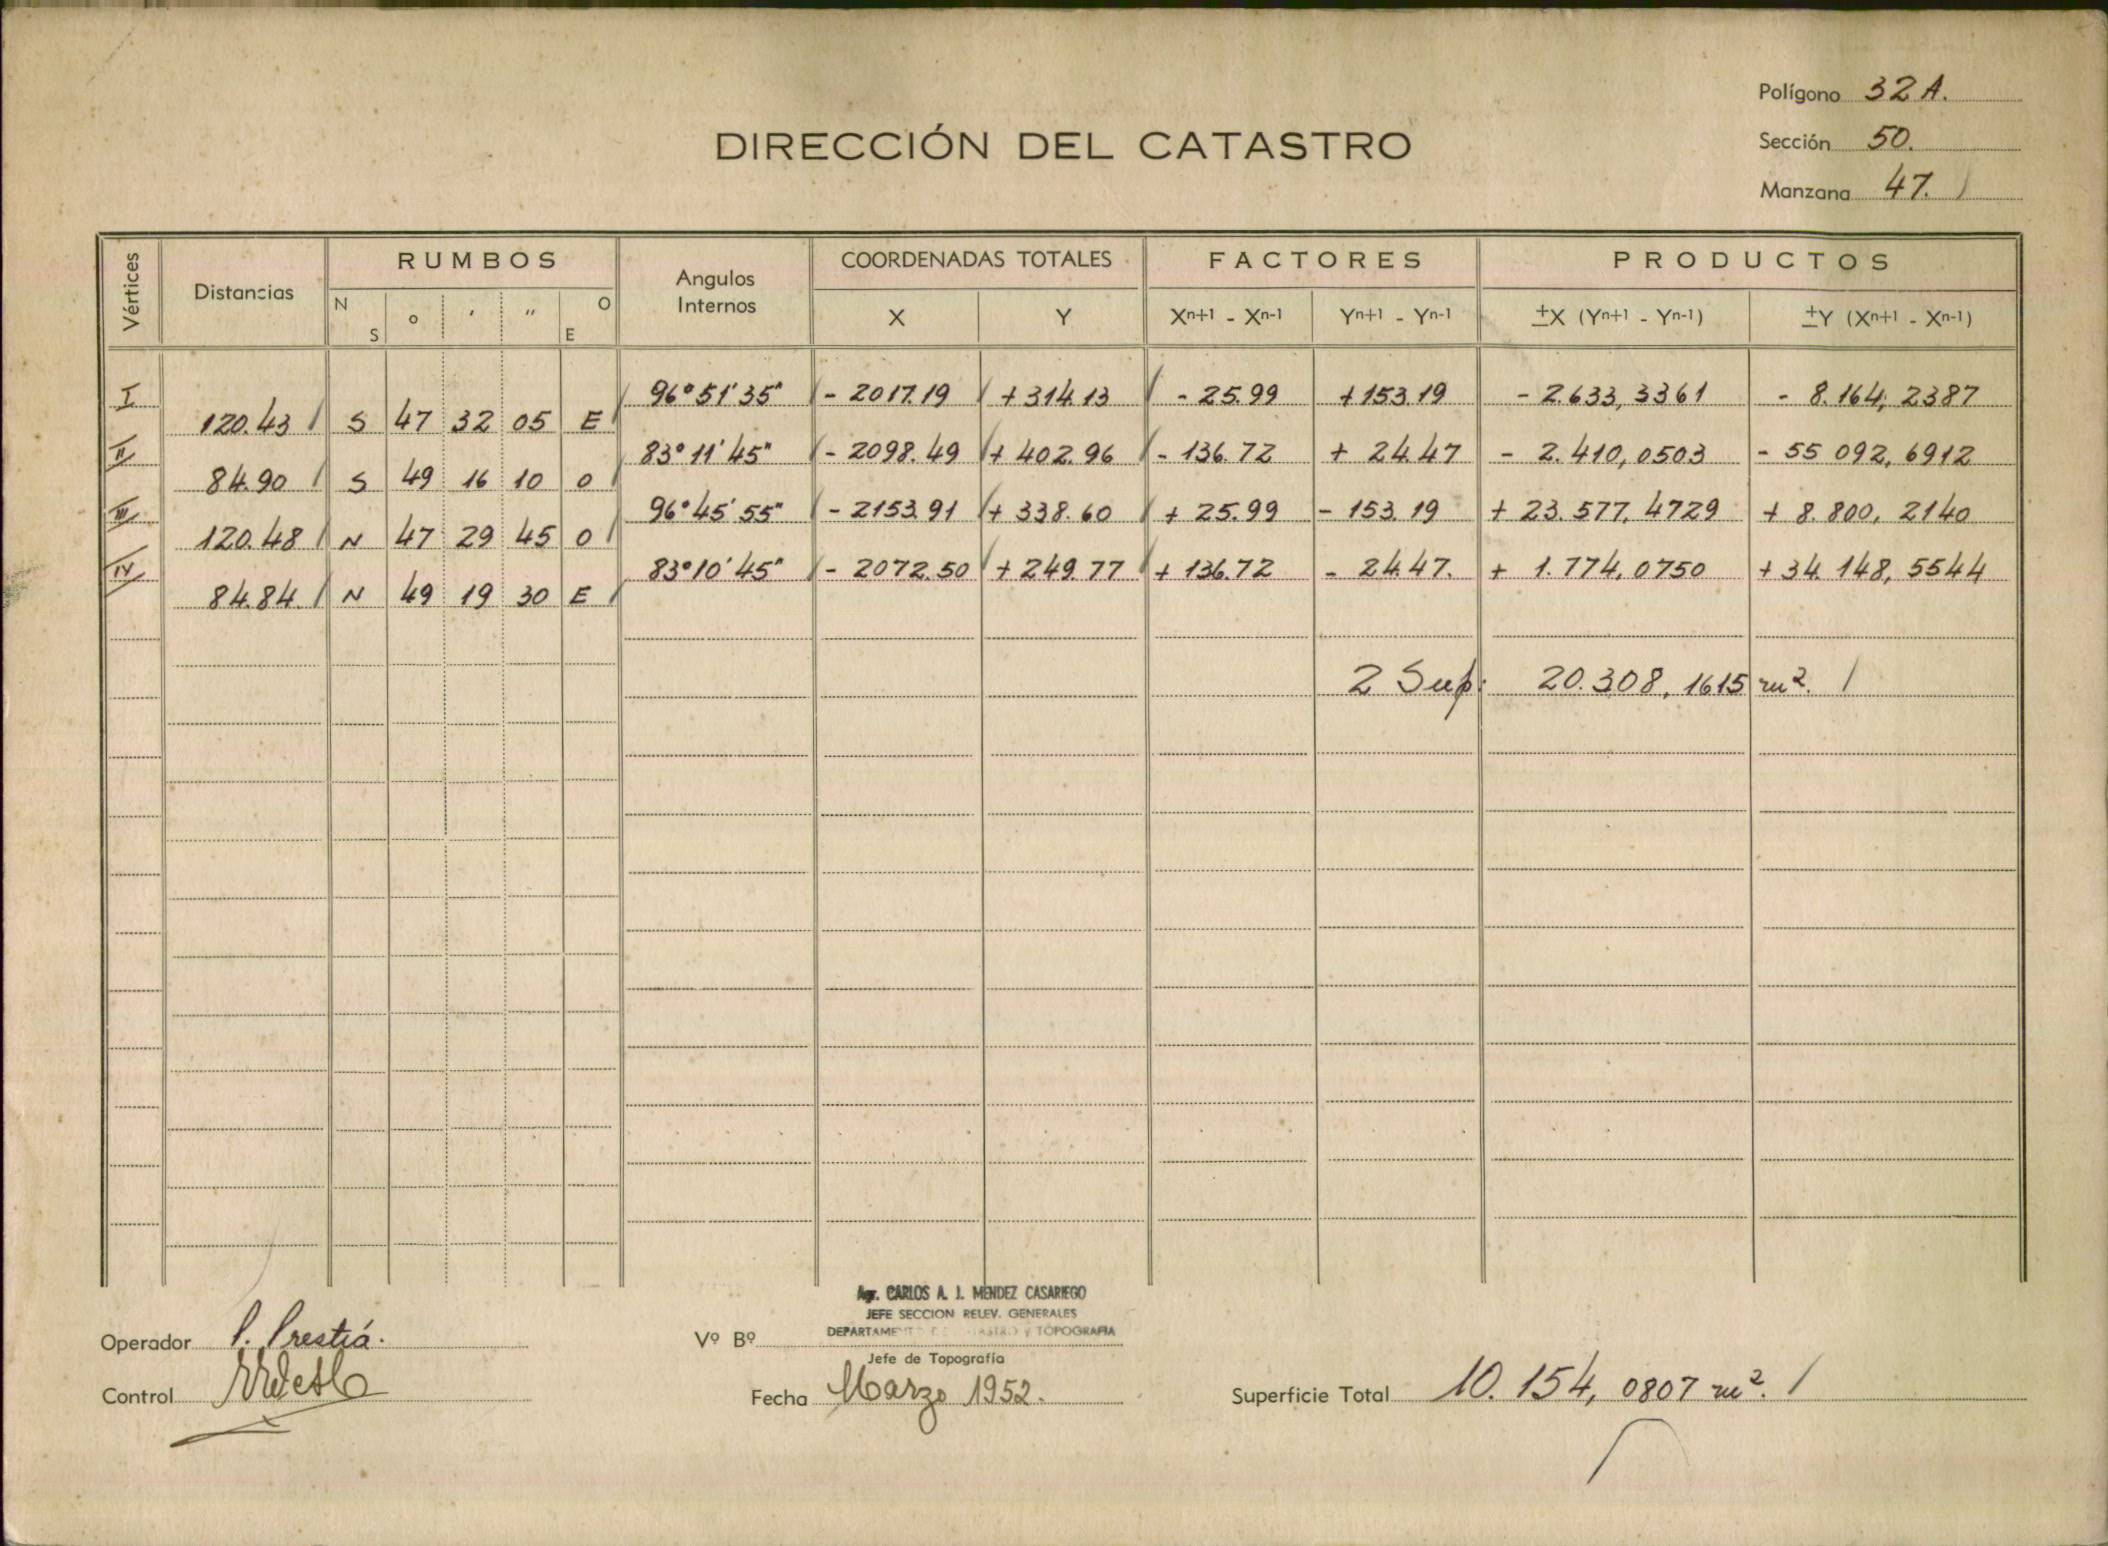 Polígono 32 A.
DIRECCIÓN DEL CATASTRO
Sección 50.
Manzana 47.
Vértices Distancias RUMBOS Angulos Internos COORDENADAS TOTALES FACTORES PRODUCTOS
N S o ' " O E X Y Xn+1 - Xn-1 Yn+1 - Yn-1 ±X (Yn+1 - Yn-1) ±Y (Xn+1 - Xn-1)
I 96° 51' 35" - 2017.19 + 314.13 - 25.99 + 153.19 - 2.633,3361 - 8.164,2387
120.43 S 47 32 05 E
II 83° 11' 45" - 2098.49 + 402.96 - 136.72 + 24.47 - 2.410,0503 - 55 092,6912
84.90 S 49 16 10 O
III 96° 45' 55" - 2153.91 + 338.60 + 25.99 - 153.19 + 23.577,4729 + 8.800,2140
120.48 N 47 29 45 O
IV 83° 10' 45" - 2072.50 + 249.77 + 136.72 - 24.47. + 1.774,0750 + 34 148,5544
84.84. N 49 19 30 E
2 Sup: 20.308,1615 m².
Agr. CARLOS A. J. MENDEZ CASARIEGO
JEFE SECCION RELEV. GENERALES
DEPARTAMENTO DE CATASTRO y TOPOGRAFIA
Operador P. Prestiá. Vº Bº
Jefe de Topografía
Control Fecha Marzo 1952. Superficie Total 10.154,0807 m².